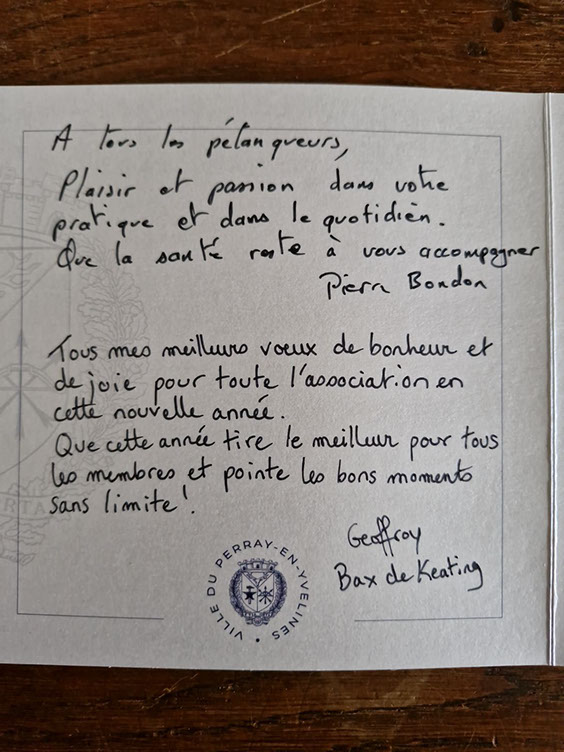 A tous les pétanqueurs,
Plaisir et passion dans votre
pratique et dans le quotidien.
Que la santé reste à vous accompagner
Pierre Bondon
Tous mes meilleurs vœux de bonheur et
de joie pour toute l'association en
cette nouvelle année.
Que cette année tire le meilleur pour tous
les membres et pointe les bons moments
sans limite !
Geoffroy
Bax de Keating
VILLE DU PERRAY-EN-YVELINES